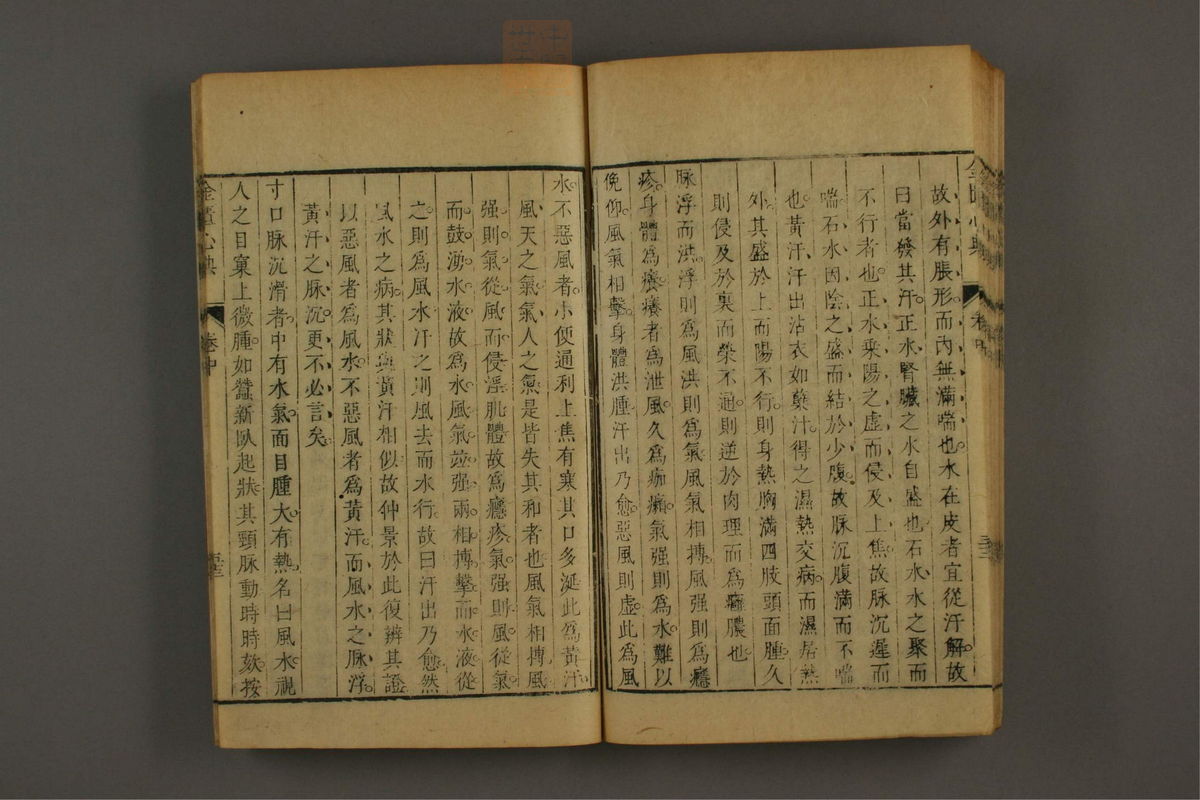 故外有脹形而內無滿喘也水在皮者宜從汗解故
曰當發其汗正水腎臟之水自盛也石水水之聚而
不行者也正水乘陽之虛而侵及上焦故脉沉遲而
喘石水因陰之盛而結於少腹故脉沉腹滿而不喘
也黃汗汗出沾衣如蘗汁得之濕熱交病而濕居熱
外其盛於上而陽不行則身熱胸滿四肢頭面腫久
則侵及於裏而榮不通則逆於肉理而為癰膿也
脉浮而洪浮則為風洪則為氣風氣相搏風强則為癮
疹身體為癢癢者為泄風久為痂癩氣强則為水難以
俛仰風氣相擊身體洪腫汗出乃愈惡風則虛此為風
水不惡風者小便通利上焦有寒其口多涎此為黃汗
風天之氣氣人之氣是皆失其和者也風氣相搏風
强則氣從風而侵淫肌體故為癮疹氣强則風從氣
而鼓湧水液故為水風氣並强兩相搏擊而水液從
之則為風水汗之則風去而水行故曰汗出乃愈然
風水之病其狀與黃汗相似故仲景於此復辨其證
以惡風者為風水不惡風者為黃汗而風水之脉浮
黃汗之脉沉更不必言矣
寸口脉沉滑者中有水氣面目腫大有熱名曰風水視
人之目窠上微腫如蠶新臥起狀其頸脉動時時欬按
金匱心典
卷中